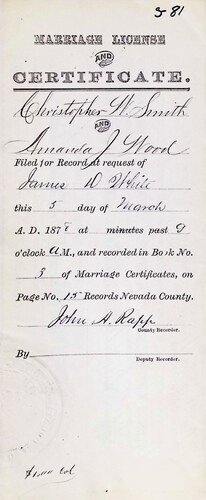 581
MARRIAGE LICENSE
AND
CERTIFICATE.
Christopher W. Smith
AND
Amanda J Wood
Filed for Record at request of
James D White
this 5 day of March
A. D. 187 at minutes past 9
o'clock A M., and recorded in Book No.
3 of Marriage Certificates, on
Page No. 15 Records Nevada County.
John A. Rapp
County Recorder.
By
Deputy Recorder.